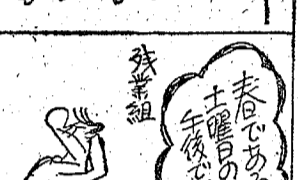 春である
土曜日の
午後で
残業組